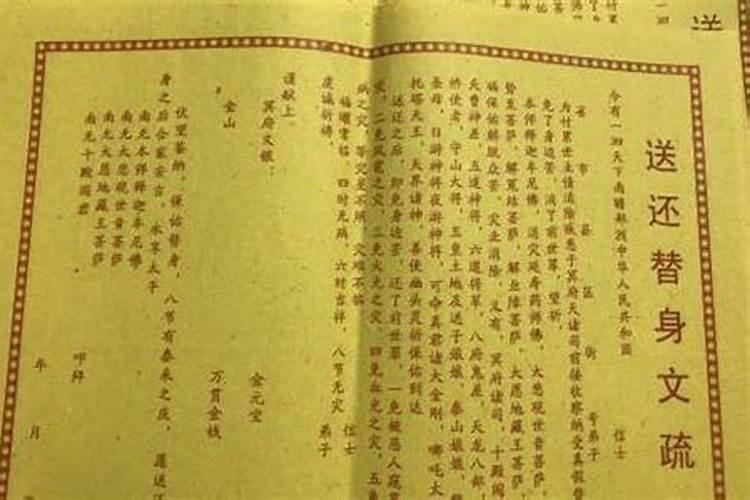 送还替身文疏
今有一四天下南赡部洲中华人民共和国
省 市 县 区 街 号弟子 信士
免了身边苦,消了前世罪,望祈
本师释迦牟尼佛,消灾延寿药师佛,大慈观世音菩萨
解冤结菩萨,解业障菩萨,大愿地藏王菩萨,
福保佑解脱众苦,灾业消除,又有,冥府诸司,十殿阎
天曹神差,五道神将,六道将军,八府鬼差,天龙八部,
桥使者,守山大将,五皇土地及送子娘娘,泰山娘娘,
圣母,日游神将夜游神将,可命真君诸大金刚,哪吒太
托塔天王,天界诸神,善使幽头灵祈保佑到达
送还之后,即免身边苦,还了前世罪,一免被恶人
二免风雹之灾,三免火光之灾,四免血光之灾,五
病之灾,等灾是不到,灾难不临
福曜常临 四时无病,六时吉祥,八节无灾 信士
虔诚祈祷, 弟子
谨献上
冥府文银: 金元宝
金山 万贯金钱
伏望鉴纳,保佑替身,八节有泰来之庆,
身之后合家安吉,永享太平
南无本师释迦牟尼佛
南无大悲观世音菩萨
南无大愿地藏王菩萨
南无十殿阎君
叩拜
年 月